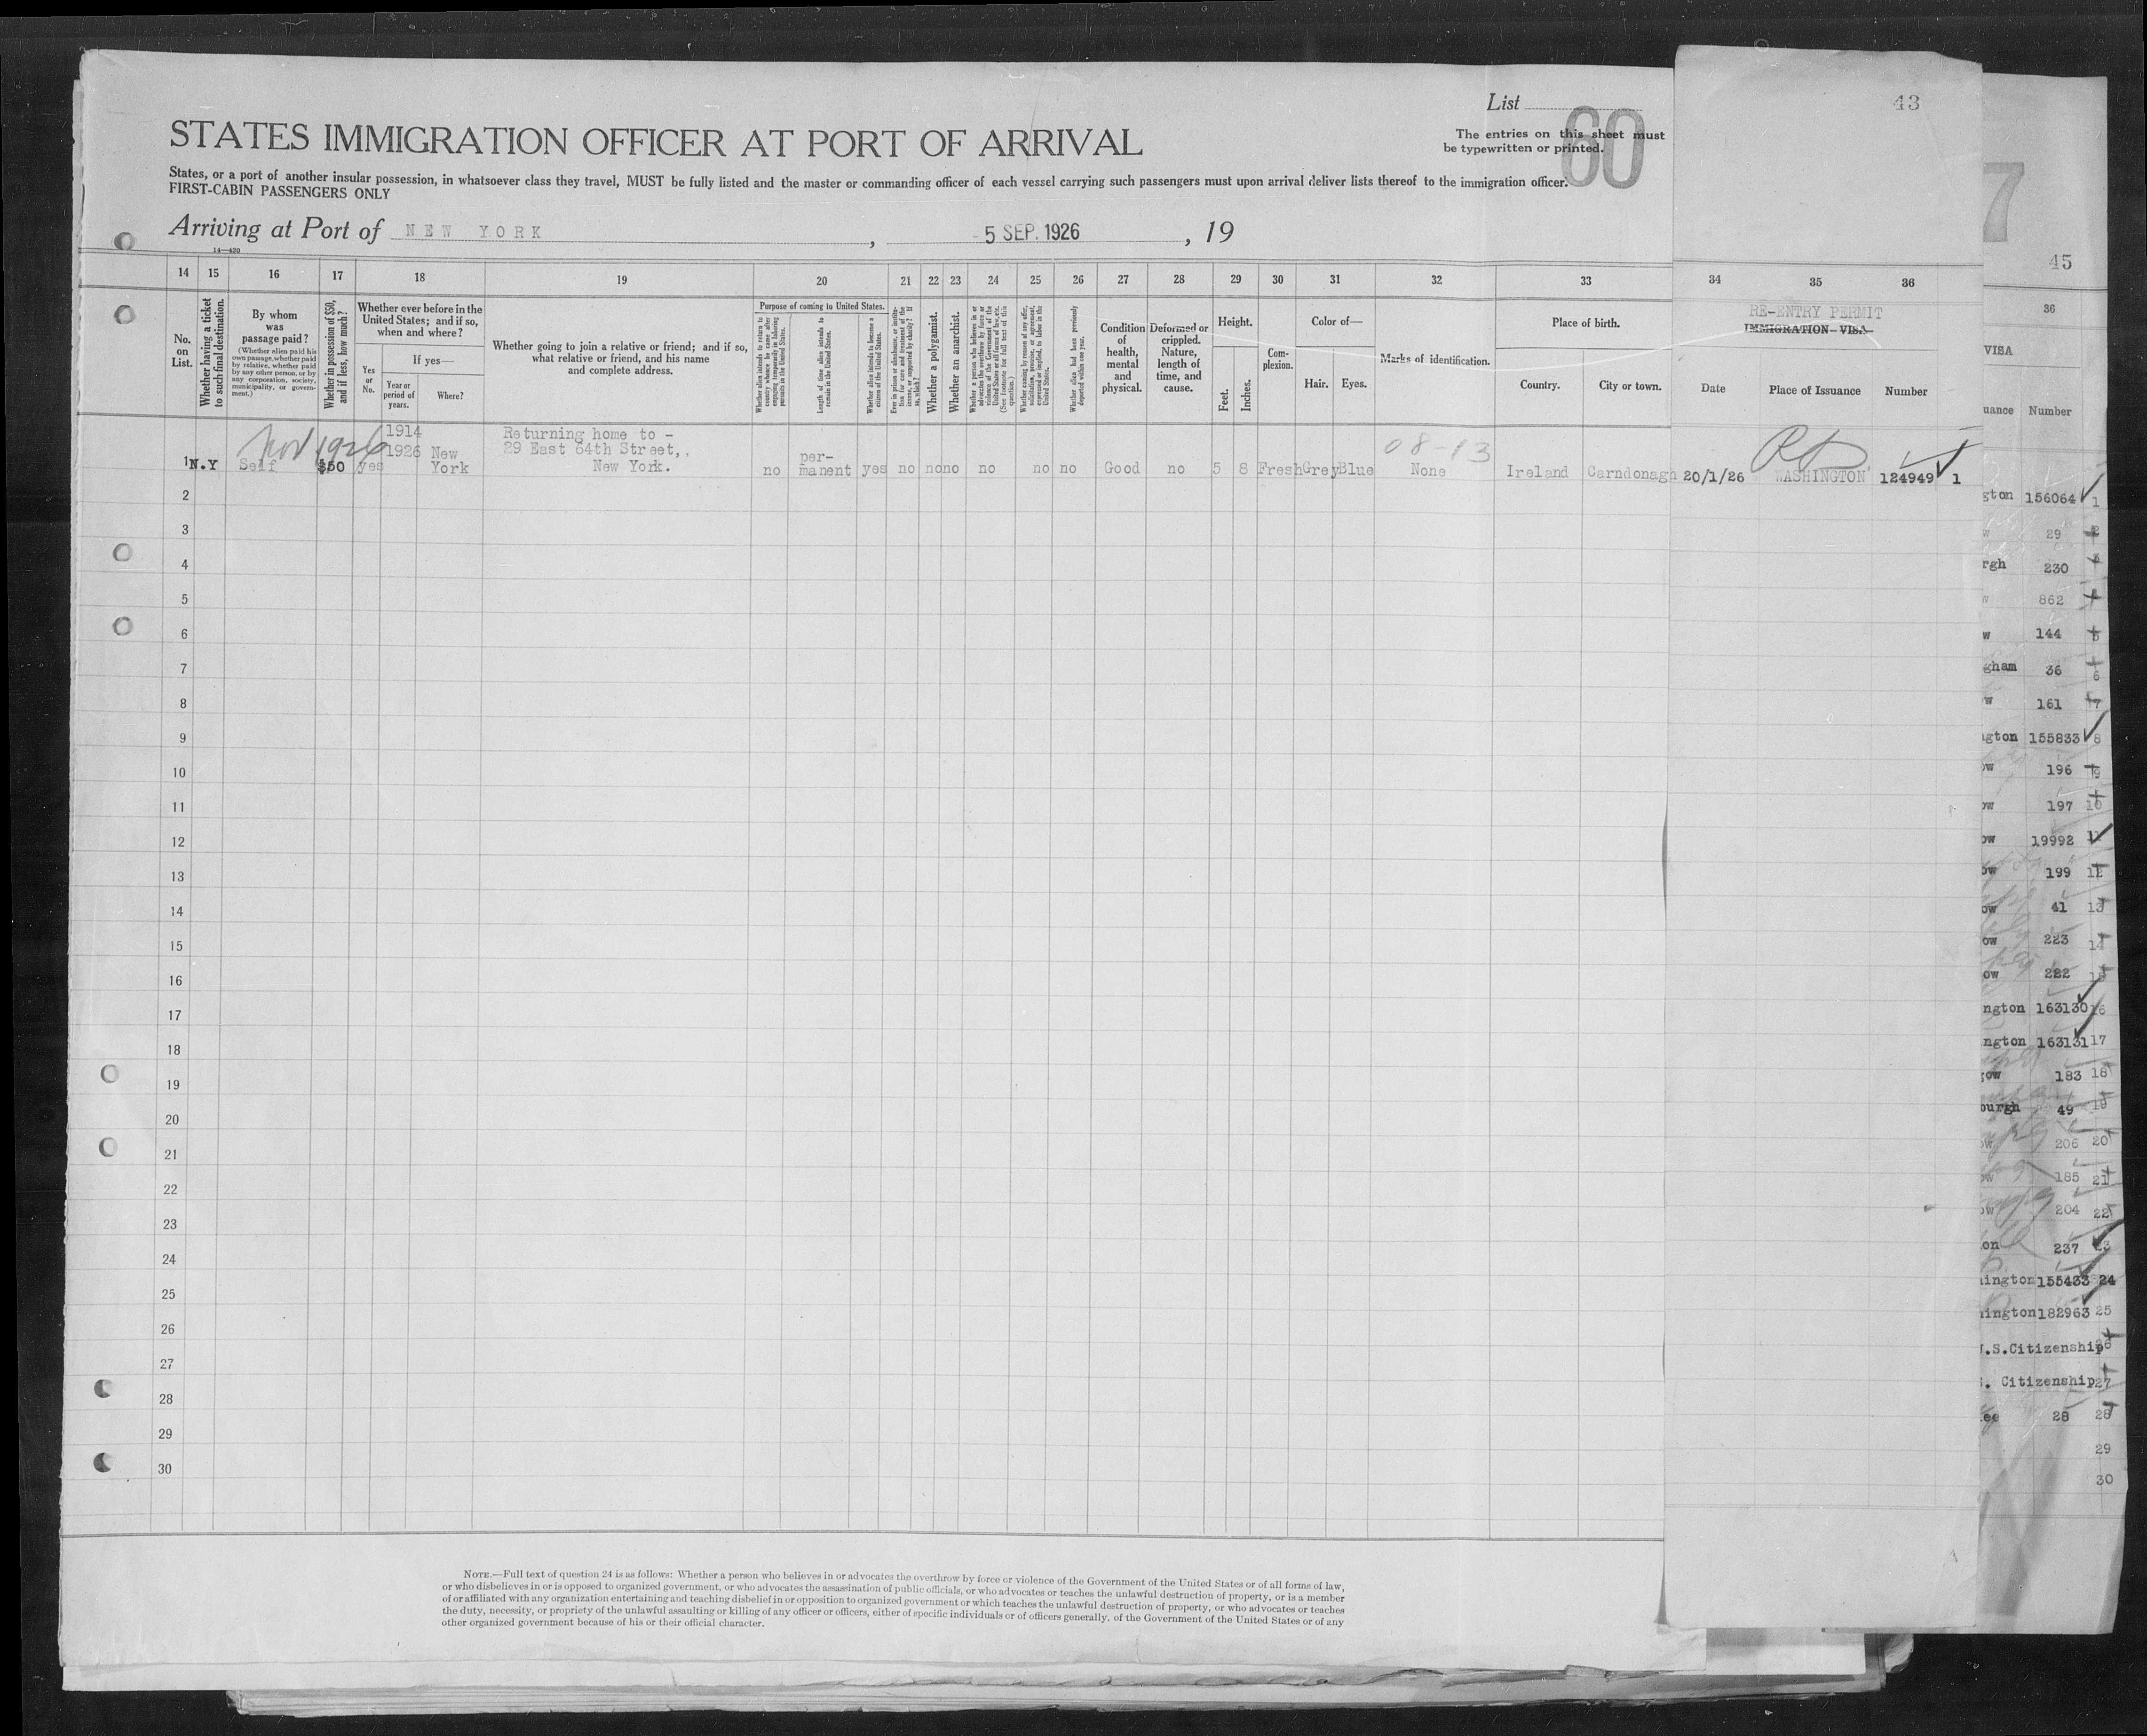 List
60
43
The entries on this sheet must
be typewritten or printed.
STATES IMMIGRATION OFFICER AT PORT OF ARRIVAL
States, or a port of another insular possession, in whatsoever class they travel, MUST be fully listed and the master or commanding officer of each vessel carrying such passengers must upon arrival deliver lists thereof to the immigration officer.
FIRST-CABIN PASSENGERS ONLY
Arriving at Port of NEW YORK, - 5 SEP. 1926, 19
14—430
7
45
14 15 16 17 18 19 20 21 22 23 24 25 26 27 28 29 30 31 32 33 34 35 36
36
No. on List.
Whether having a ticket to such final destination.
By whom was passage paid?
(Whether alien paid his own passage, whether paid by relative, whether paid by any other person, or by any corporation, society, municipality, or government.)
Whether in possession of $50, and if less, how much?
Whether ever before in the United States; and if so, when and where?
Yes or No.
If yes—
Year or period of years.
Where?
Whether going to join a relative or friend; and if so, what relative or friend, and his name and complete address.
Purpose of coming to United States.
Whether alien intends to return to country whence he came after engaging temporarily in laboring pursuits in the United States.
Length of time alien intends to remain in the United States.
Whether alien intends to become a citizen of the United States.
Ever in prison or almshouse, or institution for care and treatment of the insane, or supported by charity? If so, which?
Whether a polygamist.
Whether an anarchist.
Whether a person who believes in or advocates the overthrow by force or violence of the Government of the United States or all forms of law, etc. (See footnote for full text of this question.)
Whether coming by reason of any offer, solicitation, promise, or agreement, expressed or implied, to labor in the United States.
Whether alien had been previously deported within one year.
Condition of health, mental and physical.
Deformed or crippled. Nature, length of time, and cause.
Height.
Feet. Inches.
Complexion.
Color of—
Hair. Eyes.
Marks of identification.
Place of birth.
Country. City or town.
RE-ENTRY PERMIT
IMMIGRATION-VISA
Date Place of Issuance Number
VISA
uance Number
Nov 1926
1914
1926 New York
Returning home to -
29 East 64th Street,,
New York.
08-13
1 N.Y Self $50 yes no per-manent yes no no no no no no Good no 5 8 Fresh Grey Blue None Ireland Carndonagh 20/1/26 WASHINGTON 124949 1
2
3
4
5
6
7
8
9
10
11
12
13
14
15
16
17
18
19
20
21
22
23
24
25
26
27
28
29
30
gton 156064 1
w 29 2
rgh 230 3
w 862 4
w 144 5
gham 36 6
w 161 7
gton 155833 8
ow 196 9
ow 197 10
ow 19992 11
ow 199 12
ow 41 13
ow 223 14
ow 222 15
ngton 163130 16
ngton 163131 17
gow 183 18
burgh 49 19
ow 206 20
ow 185 21
ow 204 22
on 237 23
ington 155433 24
ington 182963 25
.S.Citizenship 26
. Citizenship 27
ee 28 28
29
30
NOTE.—Full text of question 24 is as follows: Whether a person who believes in or advocates the overthrow by force or violence of the Government of the United States or of all forms of law,
or who disbelieves in or is opposed to organized government, or who advocates the assassination of public officials, or who advocates or teaches the unlawful destruction of property, or is a member
of or affiliated with any organization entertaining and teaching disbelief in or opposition to organized government or which teaches the unlawful destruction of property, or who advocates or teaches
the duty, necessity, or propriety of the unlawful assaulting or killing of any officer or officers, either of specific individuals or of officers generally, of the Government of the United States or of any
other organized government because of his or their official character.